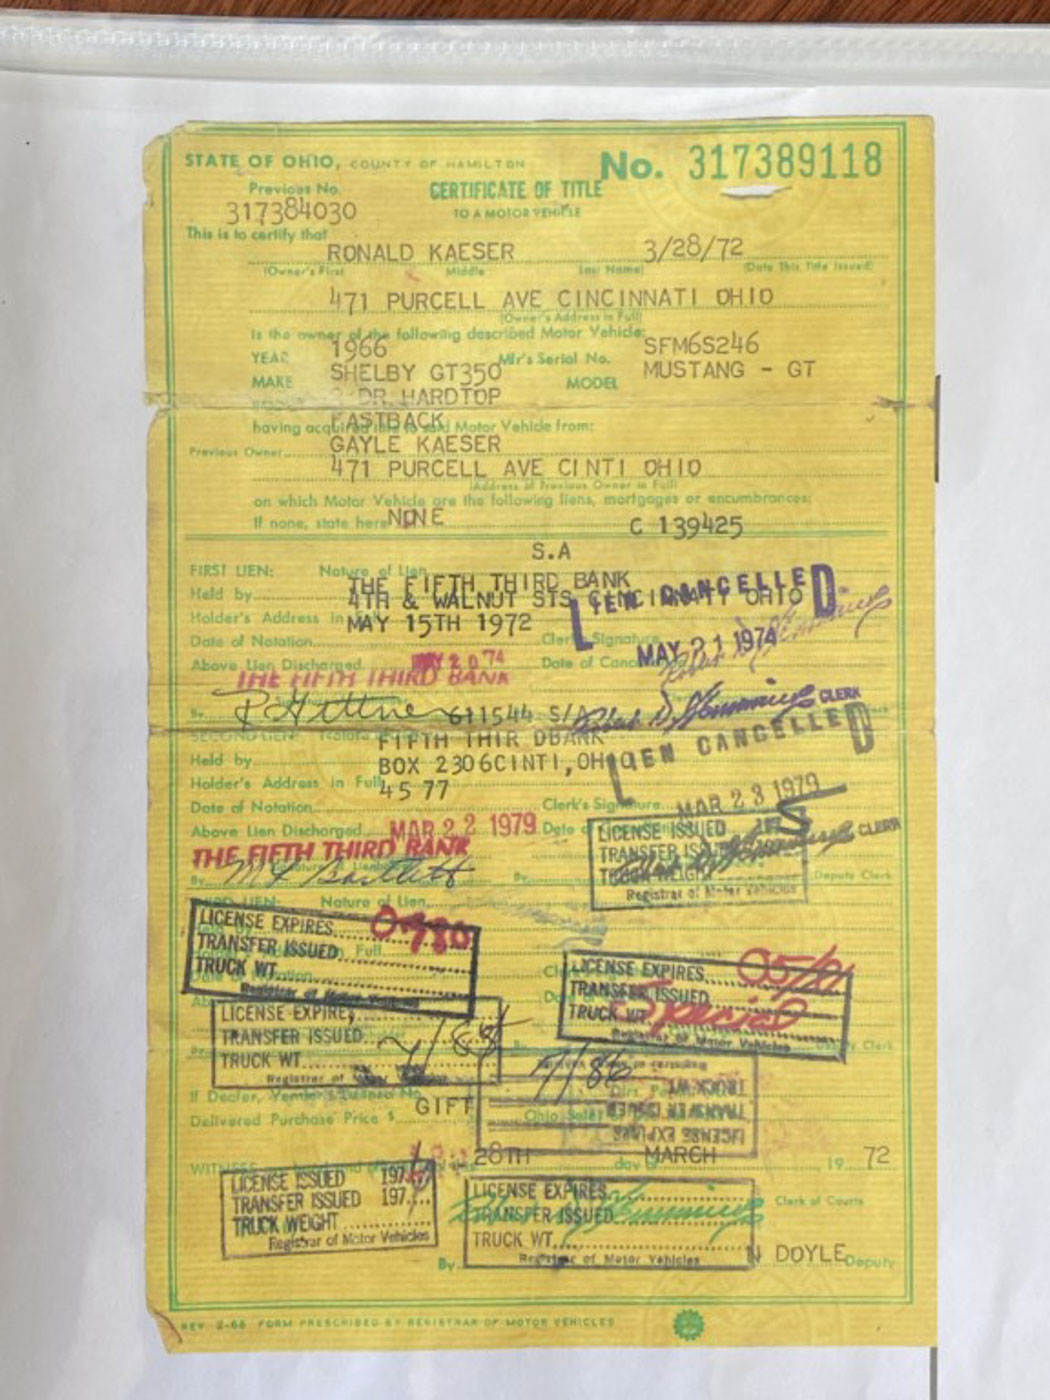 STATE OF OHIO, COUNTY OF HAMILTON No. 317389118
Previous No. CERTIFICATE OF TITLE
317384030 TO A MOTOR VEHICLE
This is to certify that
RONALD KAESER 3/28/72
(Owner's First Middle Last Name) (Date This Title Issued)
471 PURCELL AVE CINCINNATI OHIO
(Owner's Address in Full)
Is the owner of the following described Motor Vehicle:
YEAR 1966 Mfr's Serial No. SFM6S246
MAKE SHELBY GT350 MODEL MUSTANG - GT
2 DR. HARDTOP
FASTBACK
having acquired title to said Motor Vehicle from:
Previous Owner GAYLE KAESER
471 PURCELL AVE CINTI OHIO
(Address of Previous Owner in Full)
on which Motor Vehicle are the following liens, mortgages or encumbrances:
If none, state here NONE C 139425
S.A
FIRST LIEN: Nature of Lien
Held by THE FIFTH THIRD BANK
4TH & WALNUT STS CINCINNATI OHIO
LIEN CANCELLED
Holder's Address in
MAY 15TH 1972
Date of Notation Clerk's Signature
MAY 21 1974
Above Lien Discharged MAY 20 74 Date of
THE FIFTH THIRD BANK
By 611544 S/A CLERK
SECOND LIEN: Nature of Lien
FIFTH THIR DBANK
LIEN CANCELLED
Held by BOX 2306CINTI,OHIO
Holder's Address in Full
4577
Date of Notation Clerk's Signature MAR 23 1979
Above Lien Discharged MAR 22 1979 Date
THE FIFTH THIRD BANK
LICENSE ISSUED 197
TRANSFER ISSUED
TRUCK WEIGHT
CLERK
By By Deputy Clerk
Registrar of Motor Vehicles
THIRD LIEN: Nature of Lien
LICENSE EXPIRES 0980
TRANSFER ISSUED
TRUCK WT
Registrar of Motor Vehicles
LICENSE EXPIRES 05/81
TRANSFER ISSUED
TRUCK WT Special
Registrar of Motor Vehicles
Deputy Clerk
LICENSE EXPIRES
TRANSFER ISSUED
TRUCK WT
Registrar of Motor Vehicles
7/86
TRUCK WT.
TRANSFER ISSUED
LICENSE EXPIRES
If Dealer, Vendor's License No.
Delivered Purchase Price $ GIFT Ohio Sales
WITNESS 28TH day of MARCH 19 72
LICENSE ISSUED 197
TRANSFER ISSUED 197
TRUCK WEIGHT
Registrar of Motor Vehicles
LICENSE EXPIRES
TRANSFER ISSUED
TRUCK WT.
Registrar of Motor Vehicles
Clerk of Courts
By N DOYLE Deputy
REV. 2-66 FORM PRESCRIBED BY REGISTRAR OF MOTOR VEHICLES